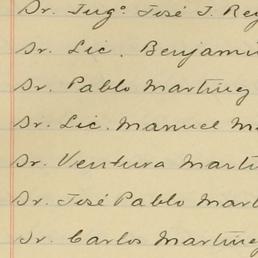 Sr. Ingº. José J. Rey
Sr. Lic. Benjami
Sr. Pablo Martínez
Sr. Lic. Manuel M
Sr. Ventura Marti
Sr. José Pablo Mart
Sr. Carlos Martínez